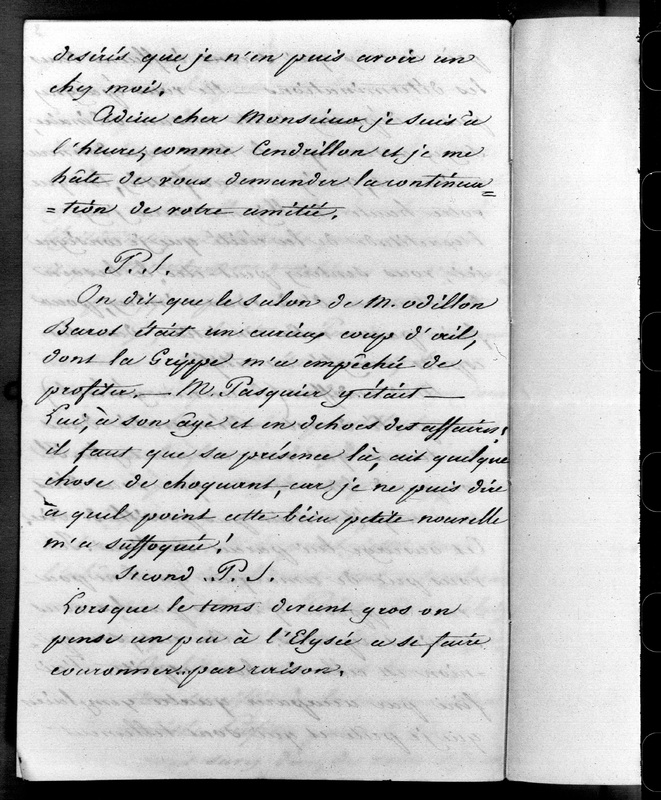 desirés que je n'en puis avoir un
chez moi.
Adieu cher Monsieur je suis à
l'heure, comme Cendrillon et je me
hâte de vous demander la continua=
=tion de votre amitié.
P.S.
On dit que le salon de M. odillon
Barot était un curieux coup d'œil,
dont la Grippe m'a empêchée de
profiter. — M. Pasquier y était —
Lui, à son âge et en dehors des affaires,
il faut que sa présence là, ait quelque
chose de choquant, car je ne puis dire
à quel point cette bien petite nouvelle
m'a suffoquée!
Second P.S.
Lorsque le tems devient gros on
pense un peu à l'Elysée a se faire
couronner.. par raison.